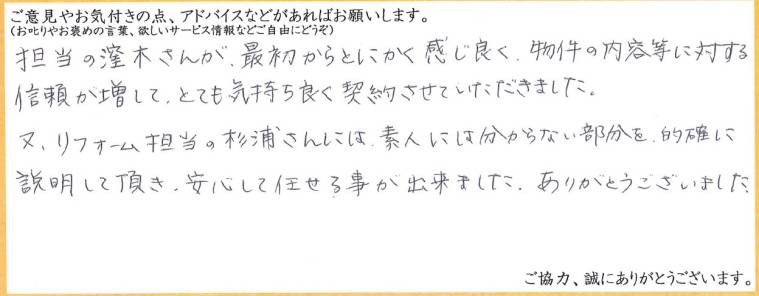 ご意見やお気付きの点、アドバイスなどがあればお願いします。
(お叱りやお褒めの言葉、欲しいサービス情報などご自由にどうぞ)
担当の窪木さんが、最初からとにかく感じ良く、物件の内容等に対する
信頼が増して、とても気持ち良く契約させていただきました。
又、リフォーム担当の杉浦さんには、素人には分からない部分を、的確に
説明して頂き、安心して任せる事が出来ました。ありがとうございました
ご協力、誠にありがとうございます。